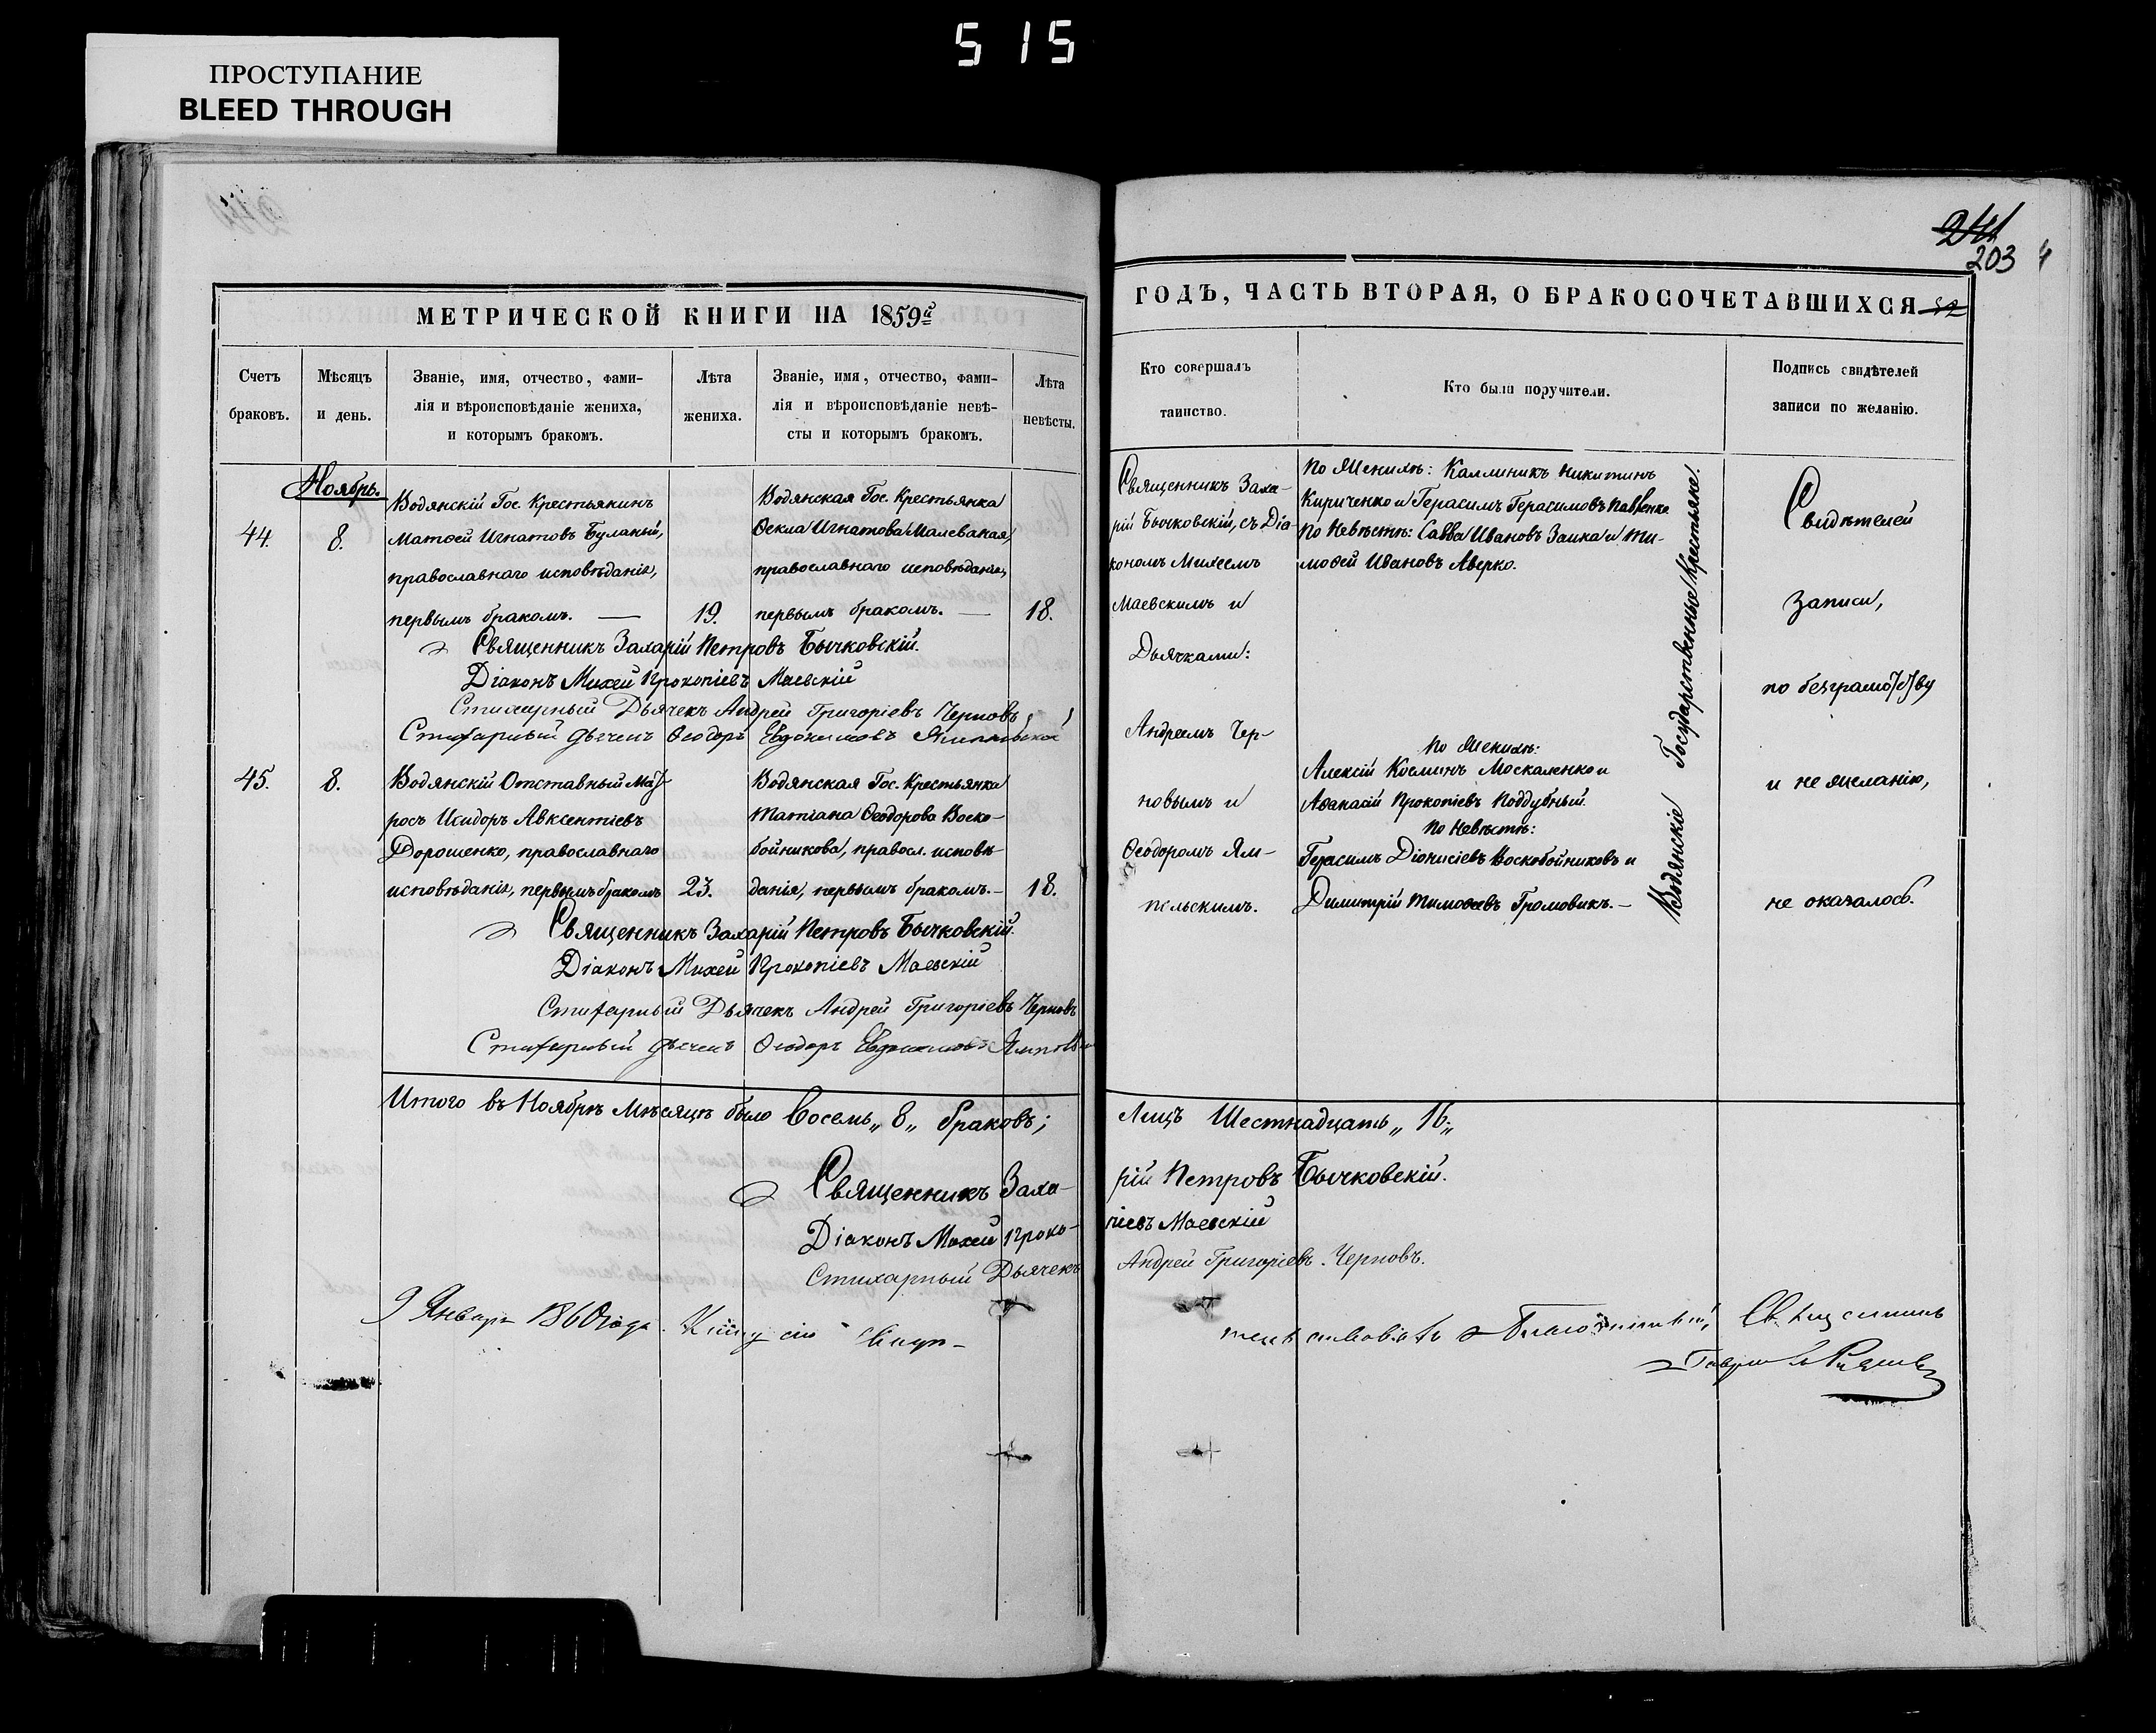 515
ПРОСТУПАНИЕ
BLEED THROUGH
МЕТРИЧЕСКОЙ КНИГИ НА 1859й
Счетъ браковъ.
Мѣсяцъ и день.
Званіе, имя, отчество, фами-
лія и вѣроисповѣданіе жениха,
и которымъ бракомъ.
Лѣта жениха.
Званіе, имя, отчество, фами-
лія и вѣроисповѣданіе невѣ-
сты и которымъ бракомъ.
Лѣта невѣсты.
Ноябрь.
44.
8.
Водянскій Гос. Крестьянинъ
Матѳей Игнатовъ Буланый,
православнаго исповѣданія,
первымъ бракомъ. —
19.
Водянская Гос. Крестьянка
Ѳекла Игнатова Малеваная,
православнаго исповѣданія,
первымъ бракомъ. —
18.
Священникъ Захарій Петровъ Бычковскій.
Діаконъ Михей Прокопіевъ Маевскій
Стихарный Дьячекъ Андрей Григоріевъ Черновъ
Стихарный дьячекъ Ѳеодоръ Евдокимовъ
45.
8.
Водянскій Отставный Мат-
росъ Исидоръ Авксентіевъ
Дорошенко, православнаго
исповѣданія, первымъ бракомъ
23.
Водянская Гос. Крестьянка
Татіана Ѳеодорова Воско-
бойникова, правосл. исповѣ-
данія, первымъ бракомъ. —
18.
Священникъ Захарій Петровъ Бычковскій.
Діаконъ Михей Прокопіевъ Маевскій
Стихарный Дьячекъ Андрей Григоріевъ Черновъ
Стихарный дьячекъ Ѳеодоръ Евдокимовъ
Итого въ Ноябрѣ Мѣсяцѣ было Восемь „8„ браковъ;
Священникъ Заха-
Діаконъ Михей Проко-
Стихарный Дьячекъ
9 Января 1860 года. Книгу сію
241
203
ГОДЪ, ЧАСТЬ ВТОРАЯ, О БРАКОСОЧЕТАВШИХСЯ
Кто совершалъ таинство.
Кто были поручители.
Подпись свидѣтелей
записи по желанію.
Священникъ Заха-
рій Бычковскій, съ Діа-
кономъ Михеемъ
Маевскимъ и
Дьячками:
Андреемъ Чер-
новымъ и
Ѳеодоромъ Ям-
польскимъ.
По Женихѣ: Каллиникъ Никитинъ
Кириченко и Герасимъ Герасимовъ Павленко
По Невѣстѣ: Савва Ивановъ Заика и Ти-
моѳей Ивановъ Аверко.
По Женихѣ:
Алексій Косминъ Москаленко и
Аѳанасій Прокопіевъ Поддубный.
По Невѣстѣ:
Герасимъ Діонисіевъ Воскобойниковъ и
Димитрій Тимоѳеевъ Громовикъ. —
Водянскіе Государственные Крестьяне.
Свидѣтелей
записи,
по безграмотству
и не желанію,
не оказалось.
Лицъ Шестнадцать „16„
рій Петровъ Бычковскій.
піевъ Маевскій
Андрей Григоріевъ Черновъ.
Священникъ